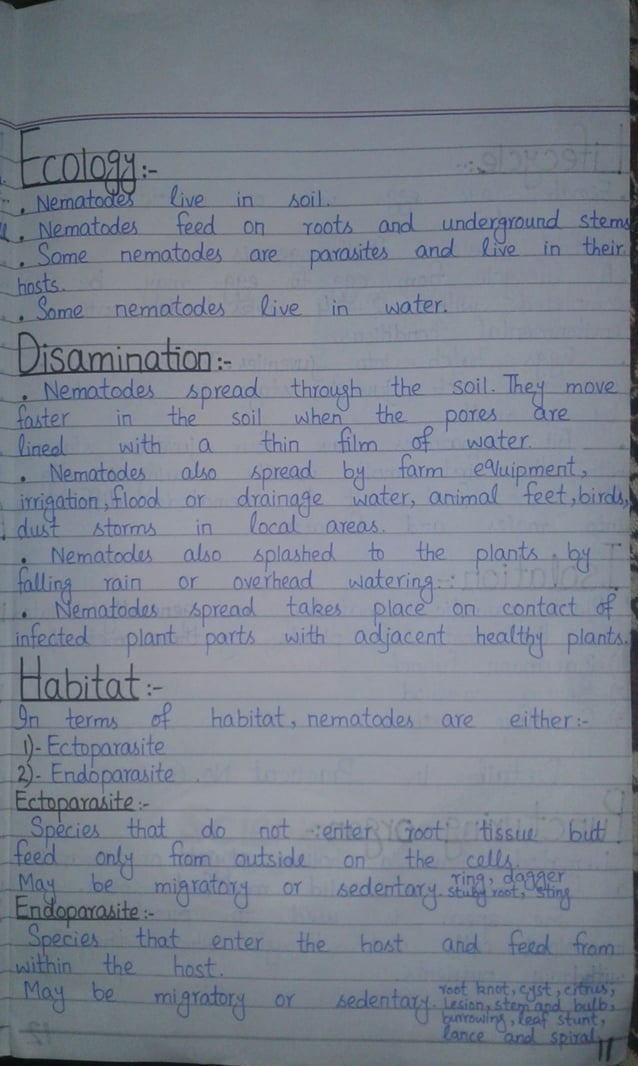 Ecology:-
. Nematodes live in soil.
. Nematodes feed on roots and underground stems
. Some nematodes are parasites and live in their
hosts.
. Some nematodes live in water.
Disamination:-
. Nematodes spread through the soil. They move
faster in the soil when the pores are
lined with a thin film of water.
. Nematodes also spread by farm equipment,
irrigation, flood or drainage water, animal feet, birds,
dust storms in local areas.
. Nematodes also splashed to the plants by
falling rain or overhead watering.
. Nematodes spread takes place on contact of
infected plant parts with adjacent healthy plants.
Habitat:-
In terms of habitat, nematodes are either:-
1)- Ectoparasite
2)- Endoparasite
Ectoparasite:-
Species that do not enter root tissue but
feed only from outside on the cells.
May be migratory or sedentary. ring, dagger
stuby root, sting
Endoparasite:-
Species that enter the host and feed from
within the host.
May be migratory or sedentary. root knot, cyst, citrus,
Lesion, stem and bulb,
burrowing, leaf stunt,
lance and spiral
11